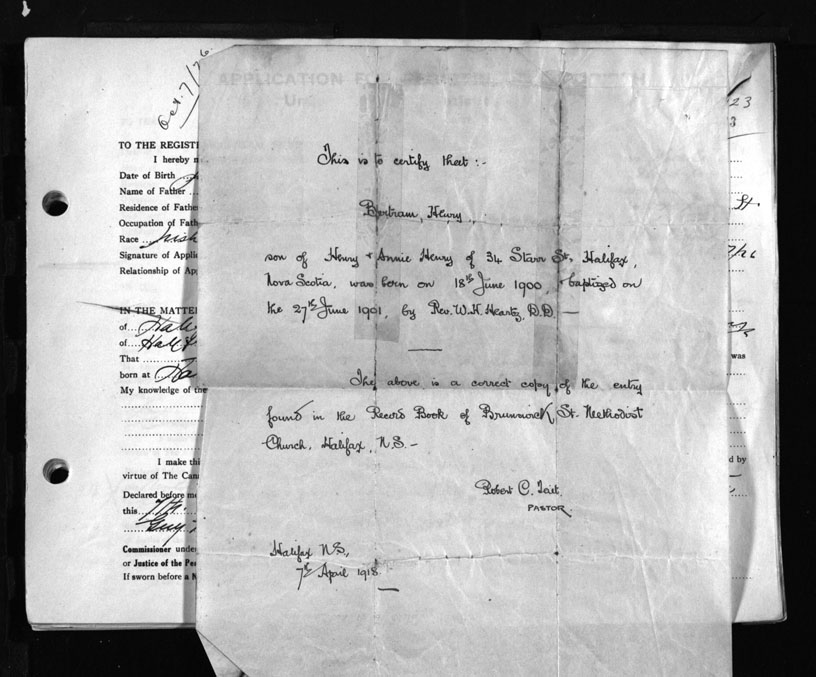 Oct. 7/26
APPLICATION FOR
23
3
TO THE REGIST
I hereby
Date of Birth
Name of Father
St.
Residence of Fathe
Occupation of Fath
Race Irish
7/26
Signature of Applic
Relationship of Ap
IN THE MATTE
of
of
was
That
born at
My knowledge of the
I make thi
d by
virtue of The Can
Declared before me
this
Commissioner unde
or Justice of the Pe
If sworn before a N
This is to certify that :-
Bertram, Henry
son of Henry + Annie Henry of 34 Starr St., Halifax,
Nova Scotia, was born on 18th June 1900, + baptized on
the 27th June 1901, by Rev. W. H. Heartz, D.D. —
The above is a correct copy of the entry
found in the Record Book of Brunswick St. Methodist
Church, Halifax, N.S. -
Robert C. Tait.
PASTOR.
Halifax N.S.,
7th April 1918